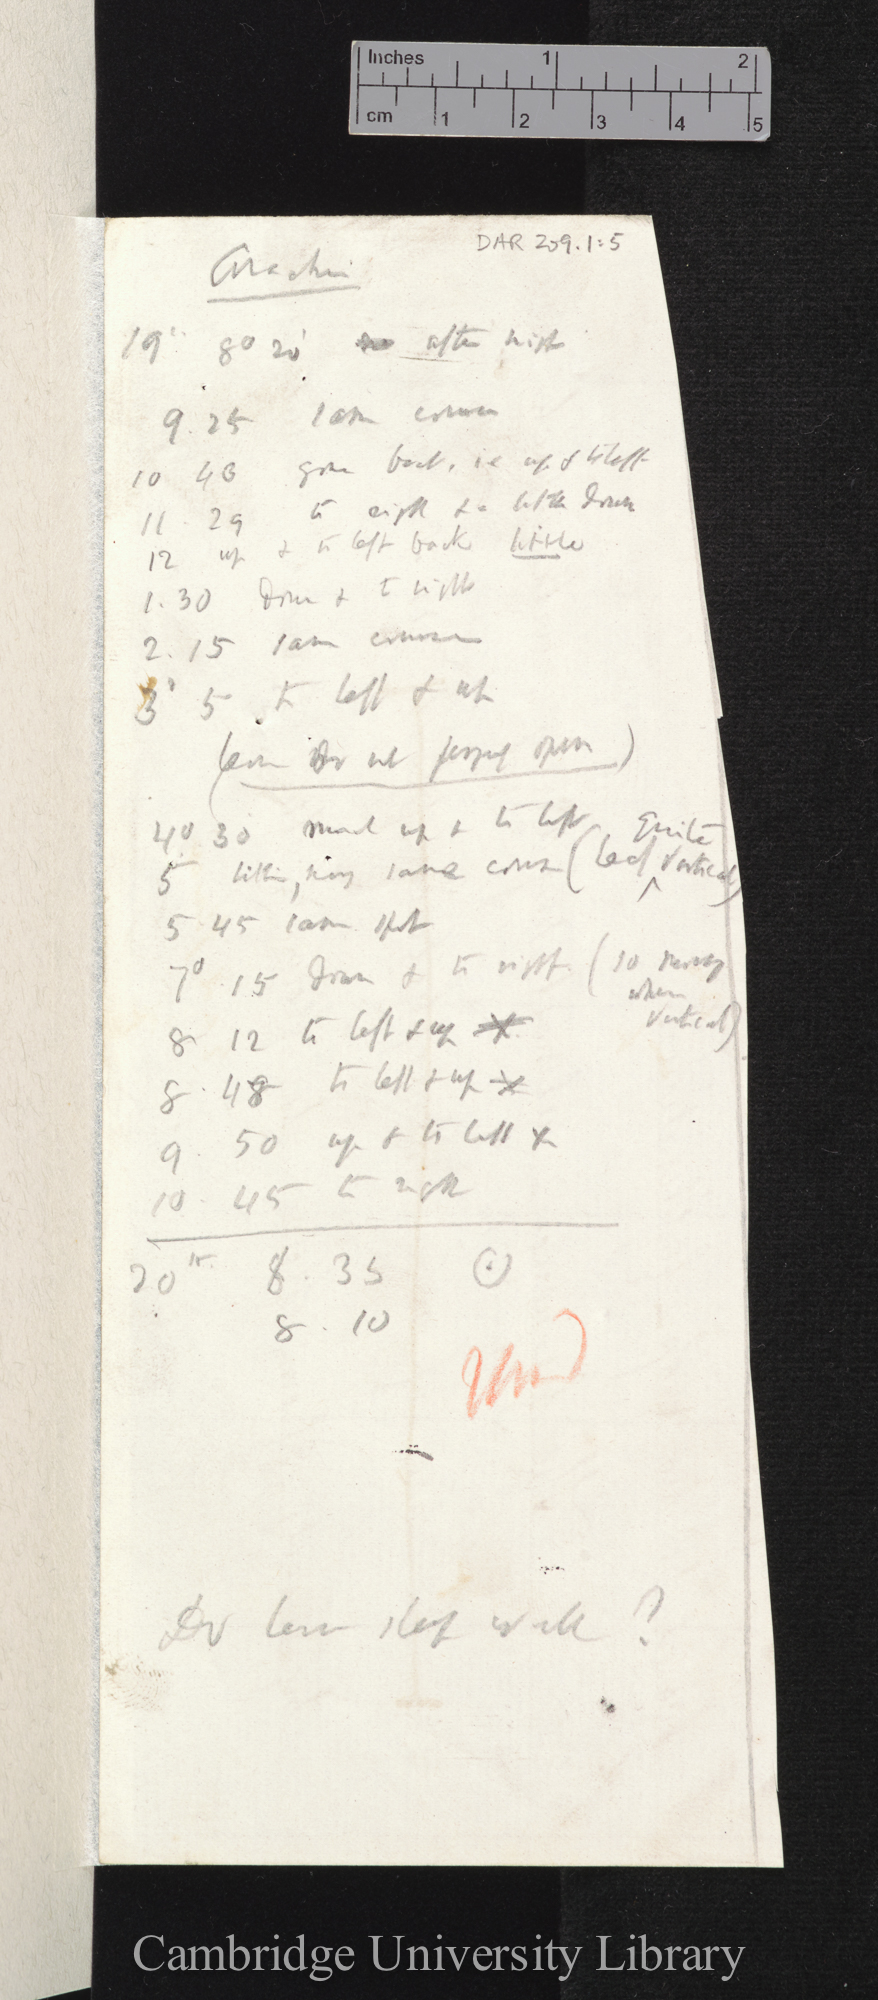 Inches 1 2
cm 1 2 3 4 5
DAR 209.1:5
Arachis
19th 8° 20' after night
9. 25 same course
10 43 gone back, ie up & to left
11. 29 to right & a little down
12 up & to left back little
1. 30 down & to right
2. 15 same course
3° 5 to left & up
(leaves do not open)
4° 30 moved up & to left
5 little, same course (leaf quite vertical)
5 45 same spot
7° 15 down & to right. (10 when vertical)
8 12 to left & up
8. 48 to left & up
9. 50 up & to left
10. 45 to right
20th 8. 35
8. 10
Used
Do leaves sleep well ?
Cambridge University Library